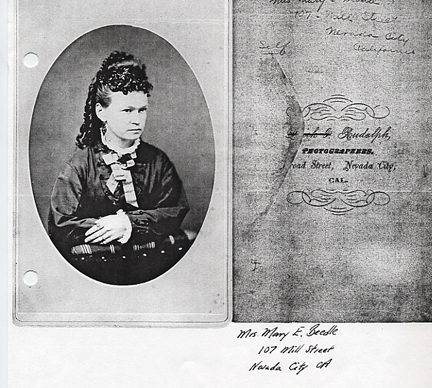 Mrs Mary E
Mill Street
Nevada City
California
Self
Rudolph,
PHOTOGRAPHERS,
road Street, Nevada City,
CAL.
Mrs Mary E. Beedle
107 Mill Street
Nevada City CA